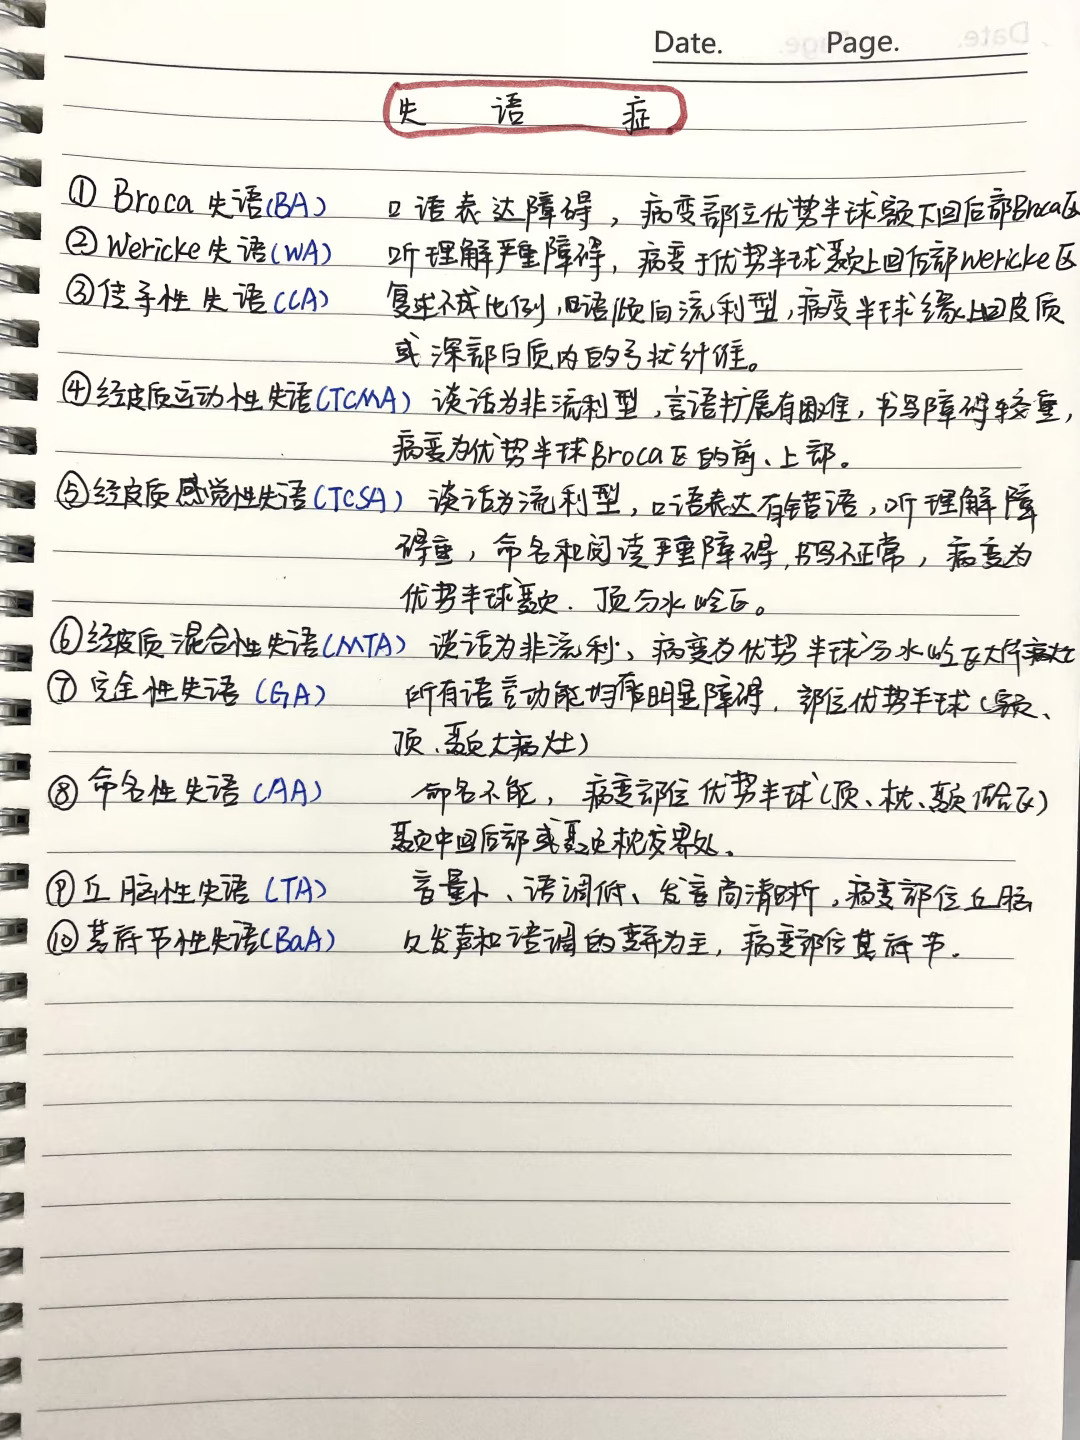 Date. Page.
失语症
① Broca失语(BA) 口语表达障碍，病变部位优势半球额下回后部Broca区
② Wericke失语(WA) 听理解严重障碍，病变于优势半球颞上回后部Wericke区
③ 传导性失语(CCA) 复述不成比例，口语倾向流利型，病变半球缘上回皮质
或深部白质内的弓状纤维。
④ 经皮质运动性失语(TCMA) 谈话为非流利型，言语扩展有困难，书写障碍较重，
病变为优势半球Broca区的前、上部。
⑤ 经皮质感觉性失语(TCSA) 谈话为流利型，口语表达有错语，听理解障
碍重，命名和阅读严重障碍，书写不正常，病变为
优势半球颞、顶分水岭区。
⑥ 经皮质混合性失语(MTA) 谈话为非流利、病变为优势半球分水岭区大片病灶
⑦ 完全性失语(GA) 所有语言功能均有明显障碍，部位优势半球(额、
顶、颞大病灶)
⑧ 命名性失语(AA) 命名不能，病变部位优势半球(顶、枕、颞结合区)
颞中回后部或颞枕交界处。
⑨ 丘脑性失语(TA) 音量小、语调低、发音尚清晰，病变部位丘脑
⑩ 基底节性失语(BaA) 以发声和语调的变异为主，病变部位基底节.